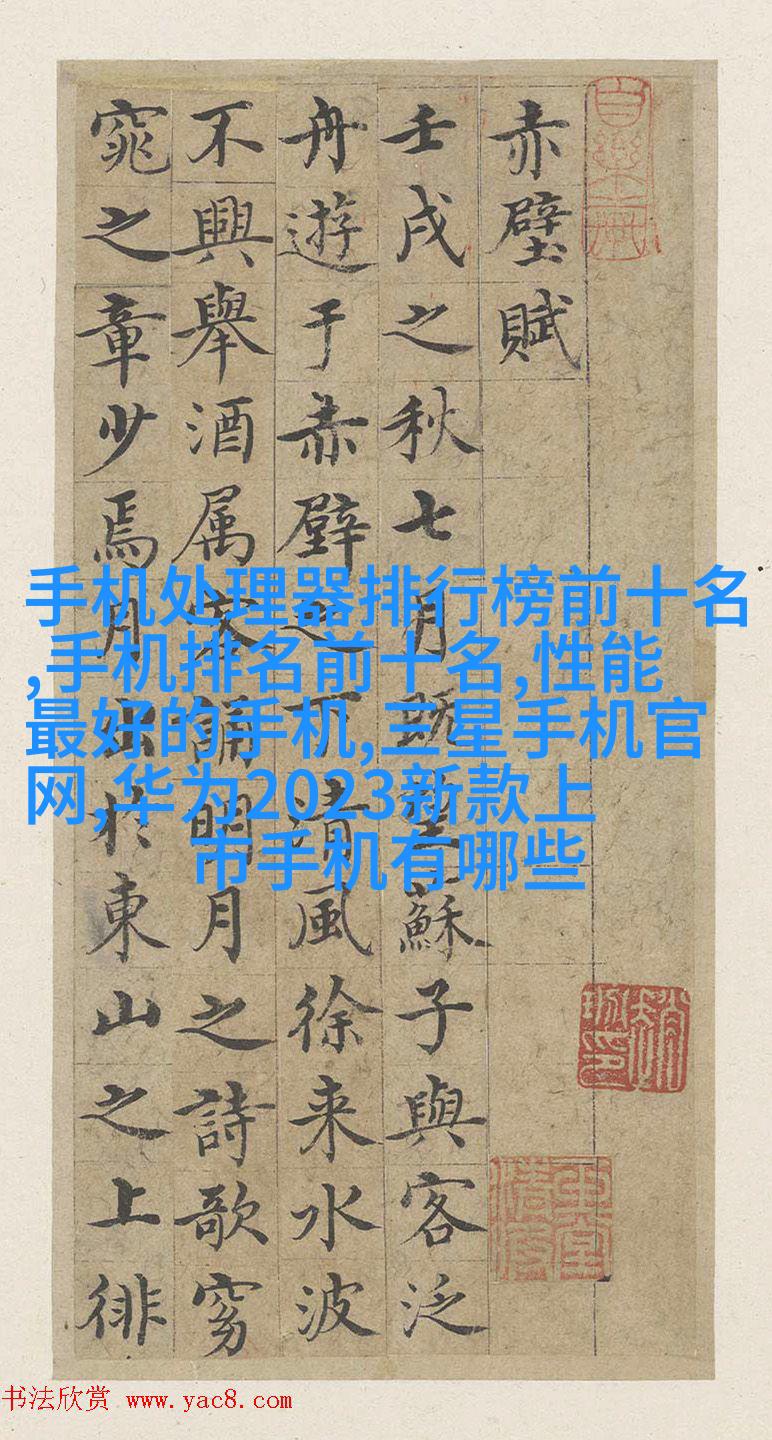 赤壁賦
壬戌之秋七月既望蘇子與客泛
舟遊于赤壁之下清風徐来水波
不興舉酒属客誦明月之詩歌窈
窕之章少焉月出於東山之上徘
手机处理器排行榜前十名
,手机排名前十名,性能
最好的手机,三星手机官
网,华为2023新款上
市手机有哪些
书法欣赏 www.yac8.com